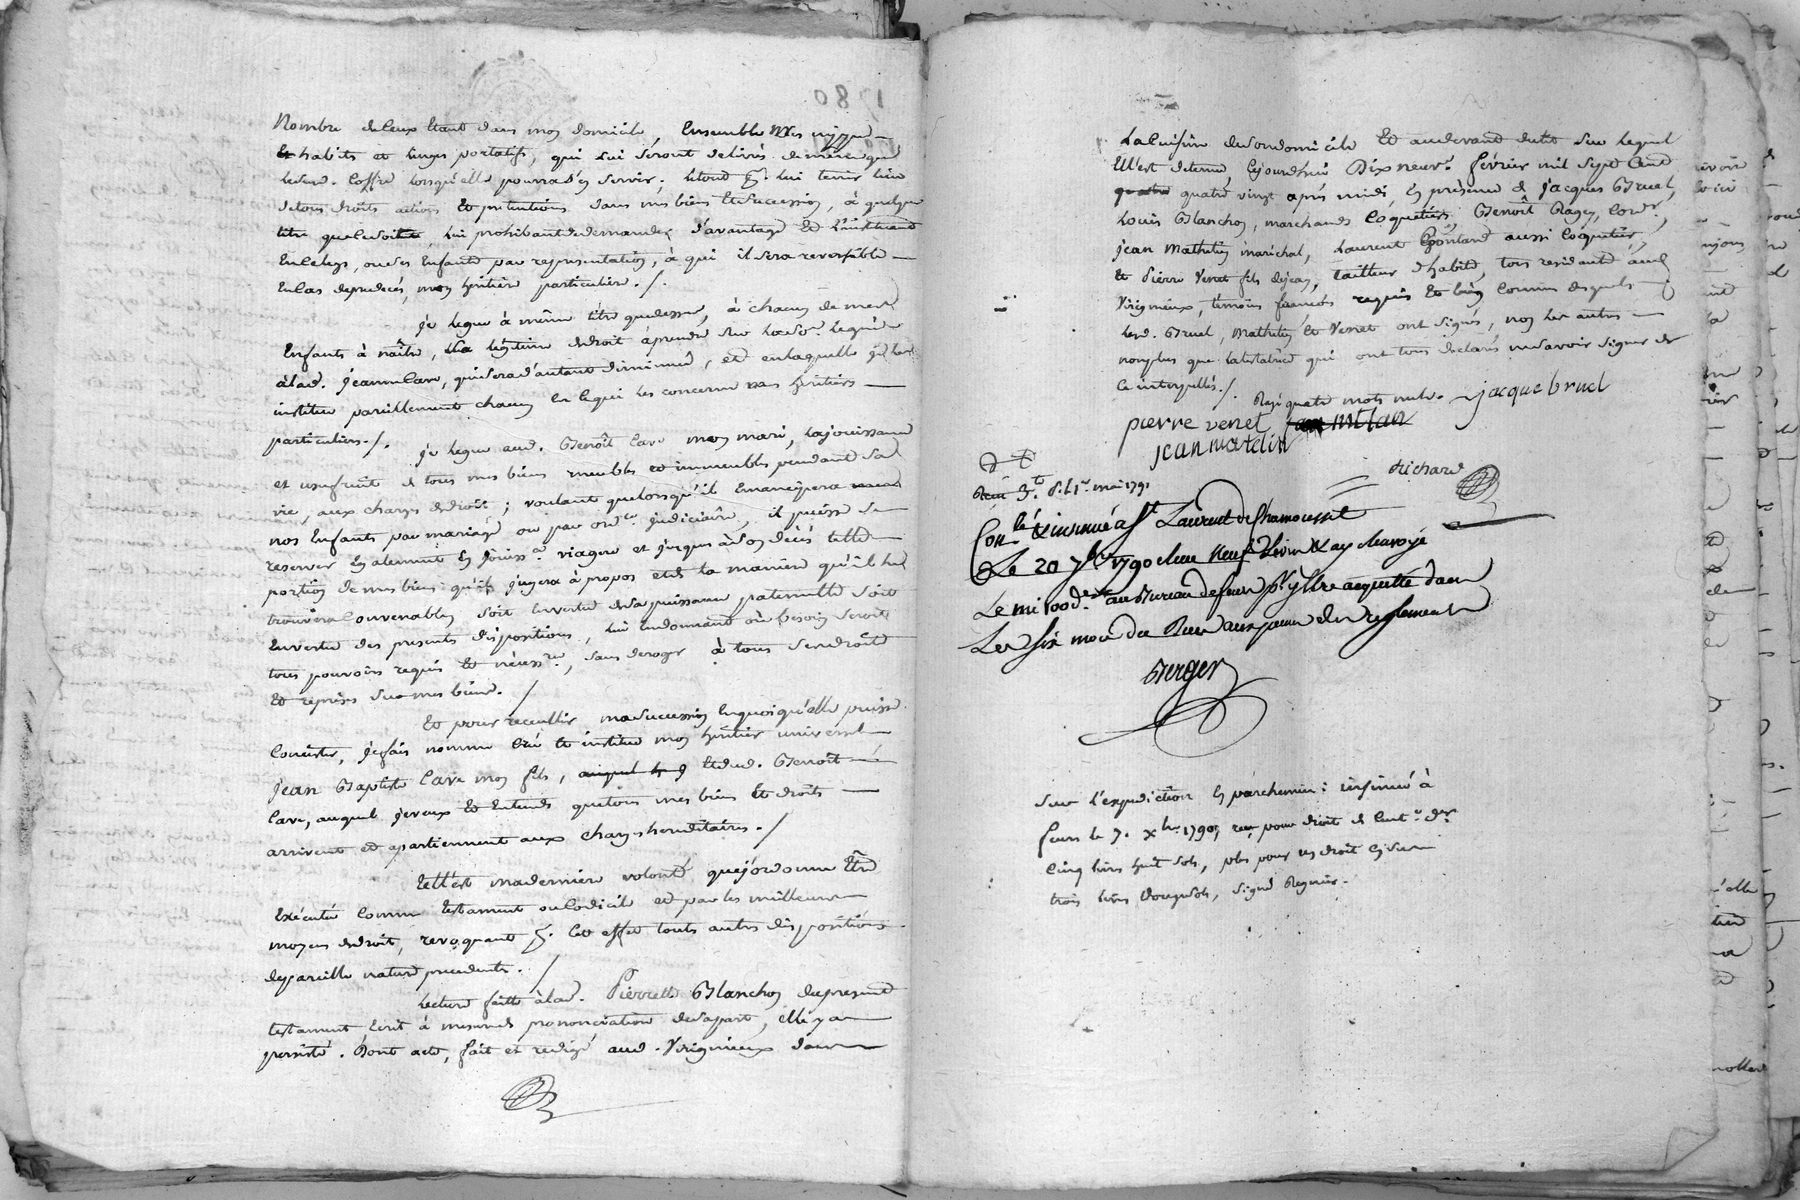 Nombre de deux Etant dans mon domicile, Ensemble Mes nippes
habits et linges portatifs, qui Lui seront delivrés de même que
led. Coffre lorsqu'elle pourra s'en servir. Letout pr. lui tenir lieu
de tous droits actions Et pretentions dans mes biens Et succession, à quelque
titre que ce soit, lui prohibant de demander d'avantage Et L'instituant
En Celuy, ou ses Enfants par representation, à qui il sera reversible
En Cas de predecés, mon heritiere particuliere ./.
Je legue à même titre que dessus, à chacun de mes
Enfants à naître, La legitime de droit à prendre sur
à lad. Jeanne Cave, qui sera d'autant diminué, et en laquelle je les
institue pareillement chacun en ce qui les concerne mes heritiers
particuliers ./.
Je legue aud. Benoît Cave mon mari, la jouissance
et usufruit de tous mes biens meubles et immeubles pendant sa
vie, aux charges de droit ; voulant que lorsqu'il Emancipera
nos Enfants par mariage ou par ord.ce judiciaire, il puisse se
reserver Egalement En jouiss.ce viagere et jusques à son décés telle
portion de mes biens qu'il jugera à propos et de la maniere qu'il le
trouvera Convenable, soit En vertu de sa puissance paternelle soit
En vertu des presentes dispositions, lui En donnant où besoin seroit
tous pouvoirs requis Et necess.res, sans deroger à tous ses droits
Et reprises sur mes biens. /
Et pour recueillir ma succession En quoi qu'elle puisse
Consister, je fais nomme Crée Et institue mon heritier universel
Jean Baptiste Cave mon fils, Et dud. Benoît
Cave, auquel je veux Et Entends que tous mes biens Et droits
arrivent et apartiennent aux charges hereditaires ./
Telle est ma derniere volonté que j'ordonne Etre
Exécutée Comme testament ou Codicile et par les meilleurs
moyens de droit, revoquant pr. Cet effet toutes autres dispositions
de pareille nature precedentes. /
Lecture faitte à lad. Pierrette Blanchon du present
testament Ecrit à mesure de prononciation de sa part, elle y a
persisté. Dont acte, fait et redigé aud. Virignieux dans
La Cuisine de son domicile Et au devant du lit sur lequel
Elle est detenue, Cejourd'hui Dix neuf fevrier mil sept Cent
quatre vingt après midi, En présence de Jacques Bruel,
Louis Blanchon, marchands Coquetiers, Benoît Ragey, Cord.r,
Jean Mathelin maréchal, Laurent aussi Coquetier,
Et Pierre Venet fils de Jean, tailleur d'habits, tous residants aud.
Virignieux, témoins requis Et bien Connus desquels
led. Bruel, Mathelin Et Venet ont signés, non les autres
non plus que la testatrice qui ont tous declarés ne savoir signer de
Ce interpellés ./. Rayé quatre mots nuls. jacque bruel
pierre venet
jean matelin
Richard
1er. mai 1791
Con.lé & insinué a St Laurent de Chamousset
Le 20 7bre 1790 Reçu Neuf Livres & ay Renvoyé
Le mi 100de. au Bureau de acquitté dans
Les six mois du Deces aux peines du reglement
Berger
Sur l'expedition En parchemin : insinué à
feurs le 7. xbre. 1790, reçu pour droit de Cent.e der
Cinq livres huit sols, plus pour un droit En sus
trois livres sols, signé Regnier.